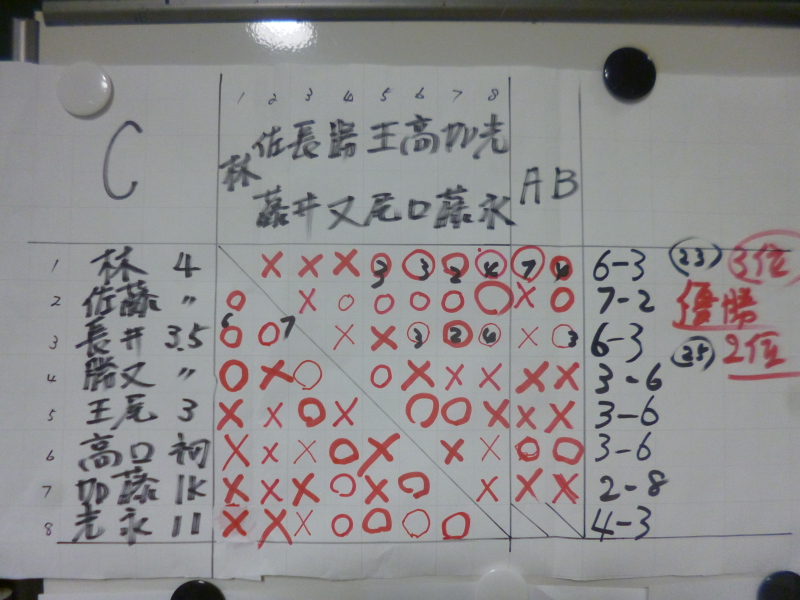 C
1 2 3 4 5 6 7 8
林 佐藤 長井 勝又 王尾 高口 加藤 光永 A B
1 林 4 × × × ○3 ○3 ○2 ○4 ○7 ○4 6-3 (23) 3位
2 佐藤 〃 ○ × ○ ○ ○ ○ ○ × ○ 7-2 優勝
3 長井 3.5 ○6 ○7 × × ○3 ○2 ○4 × ○3 6-3 (25) 2位
4 勝又 〃 ○ × ○ ○ × × × × × 3-6
5 王尾 3 × × ○ × ○ ○ × × × 3-6
6 高口 初 × × × ○ × × × ○ ○ 3-6
7 加藤 1K × × × ○ × ○ × × × 2-8
8 光永 11 × × × ○ ○ ○ ○ 4-3